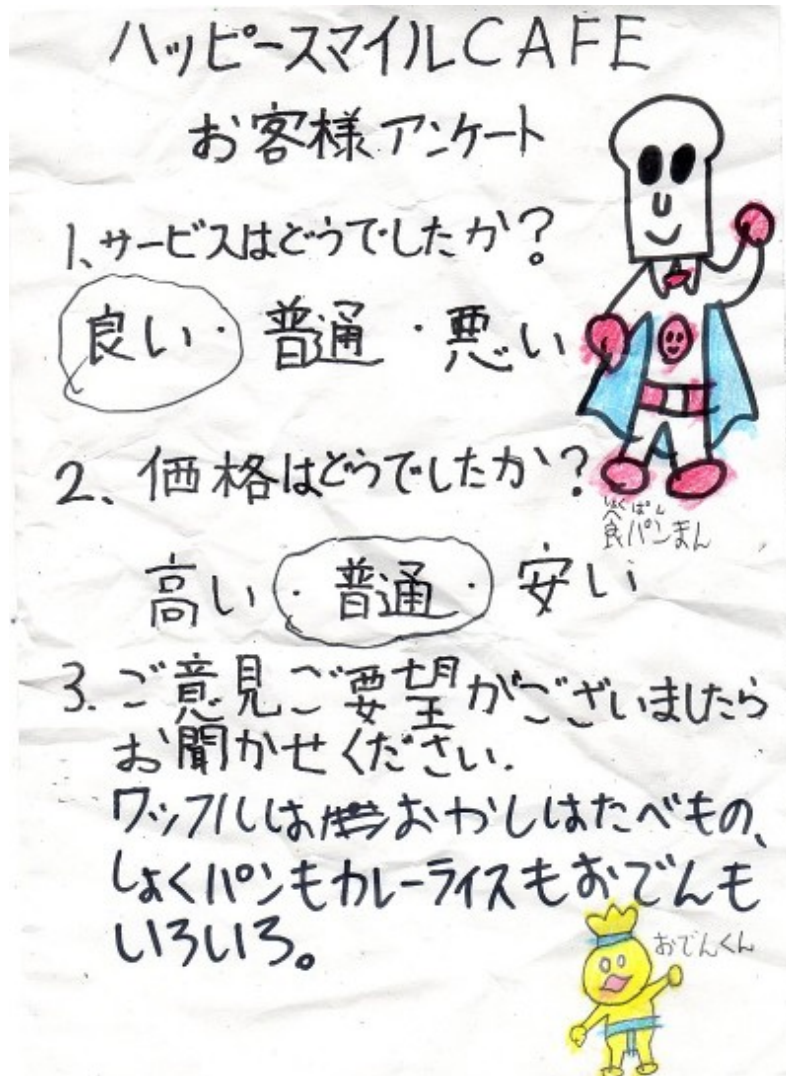 ハッピースマイルCAFE
お客様アンケート
1、サービスはどうでしたか?
良い・普通・悪い
2、価格はどうでしたか?
しょくぱん
食パンまん
高い・普通・安い
3.ご意見ご要望がございましたら
お聞かせください.
ワッフルはおかしはたべもの、
しょくパンもカレーライスもおでんも
いろいろ。
おでんくん